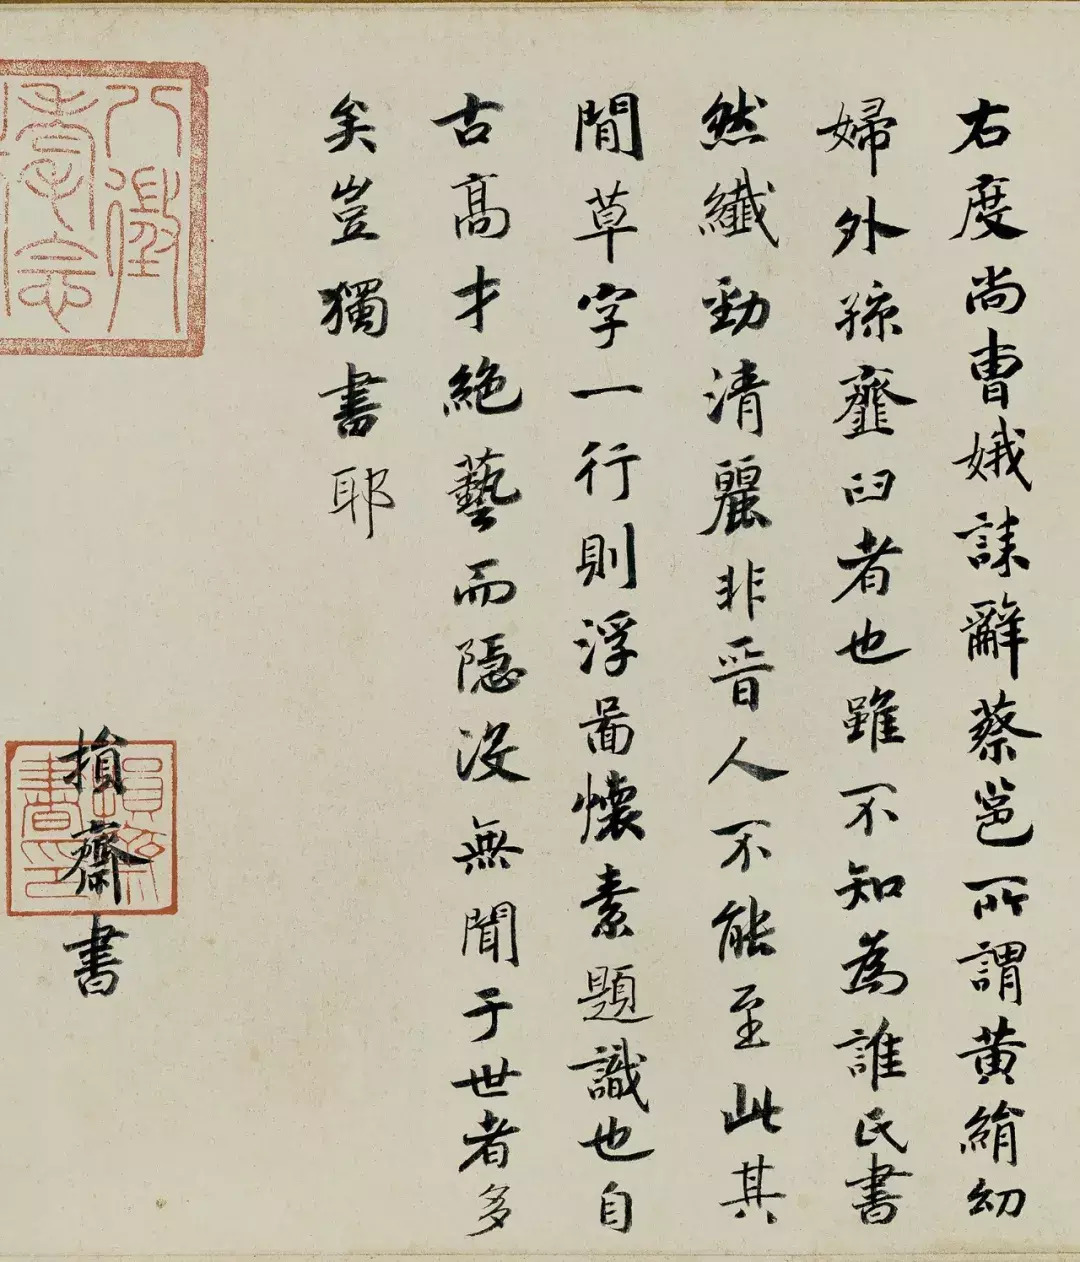 八徵耄念
右度尚曹娥誄辭蔡邕所謂黃絹幼
婦外孫齏臼者也雖不知為誰氏書
然纖勁清麗非晉人不能至此其
閒草字一行則浮啚懷素題識也自
古高才絕藝而隱沒無聞于世者多
矣豈獨書耶
損齋書
損齋書印